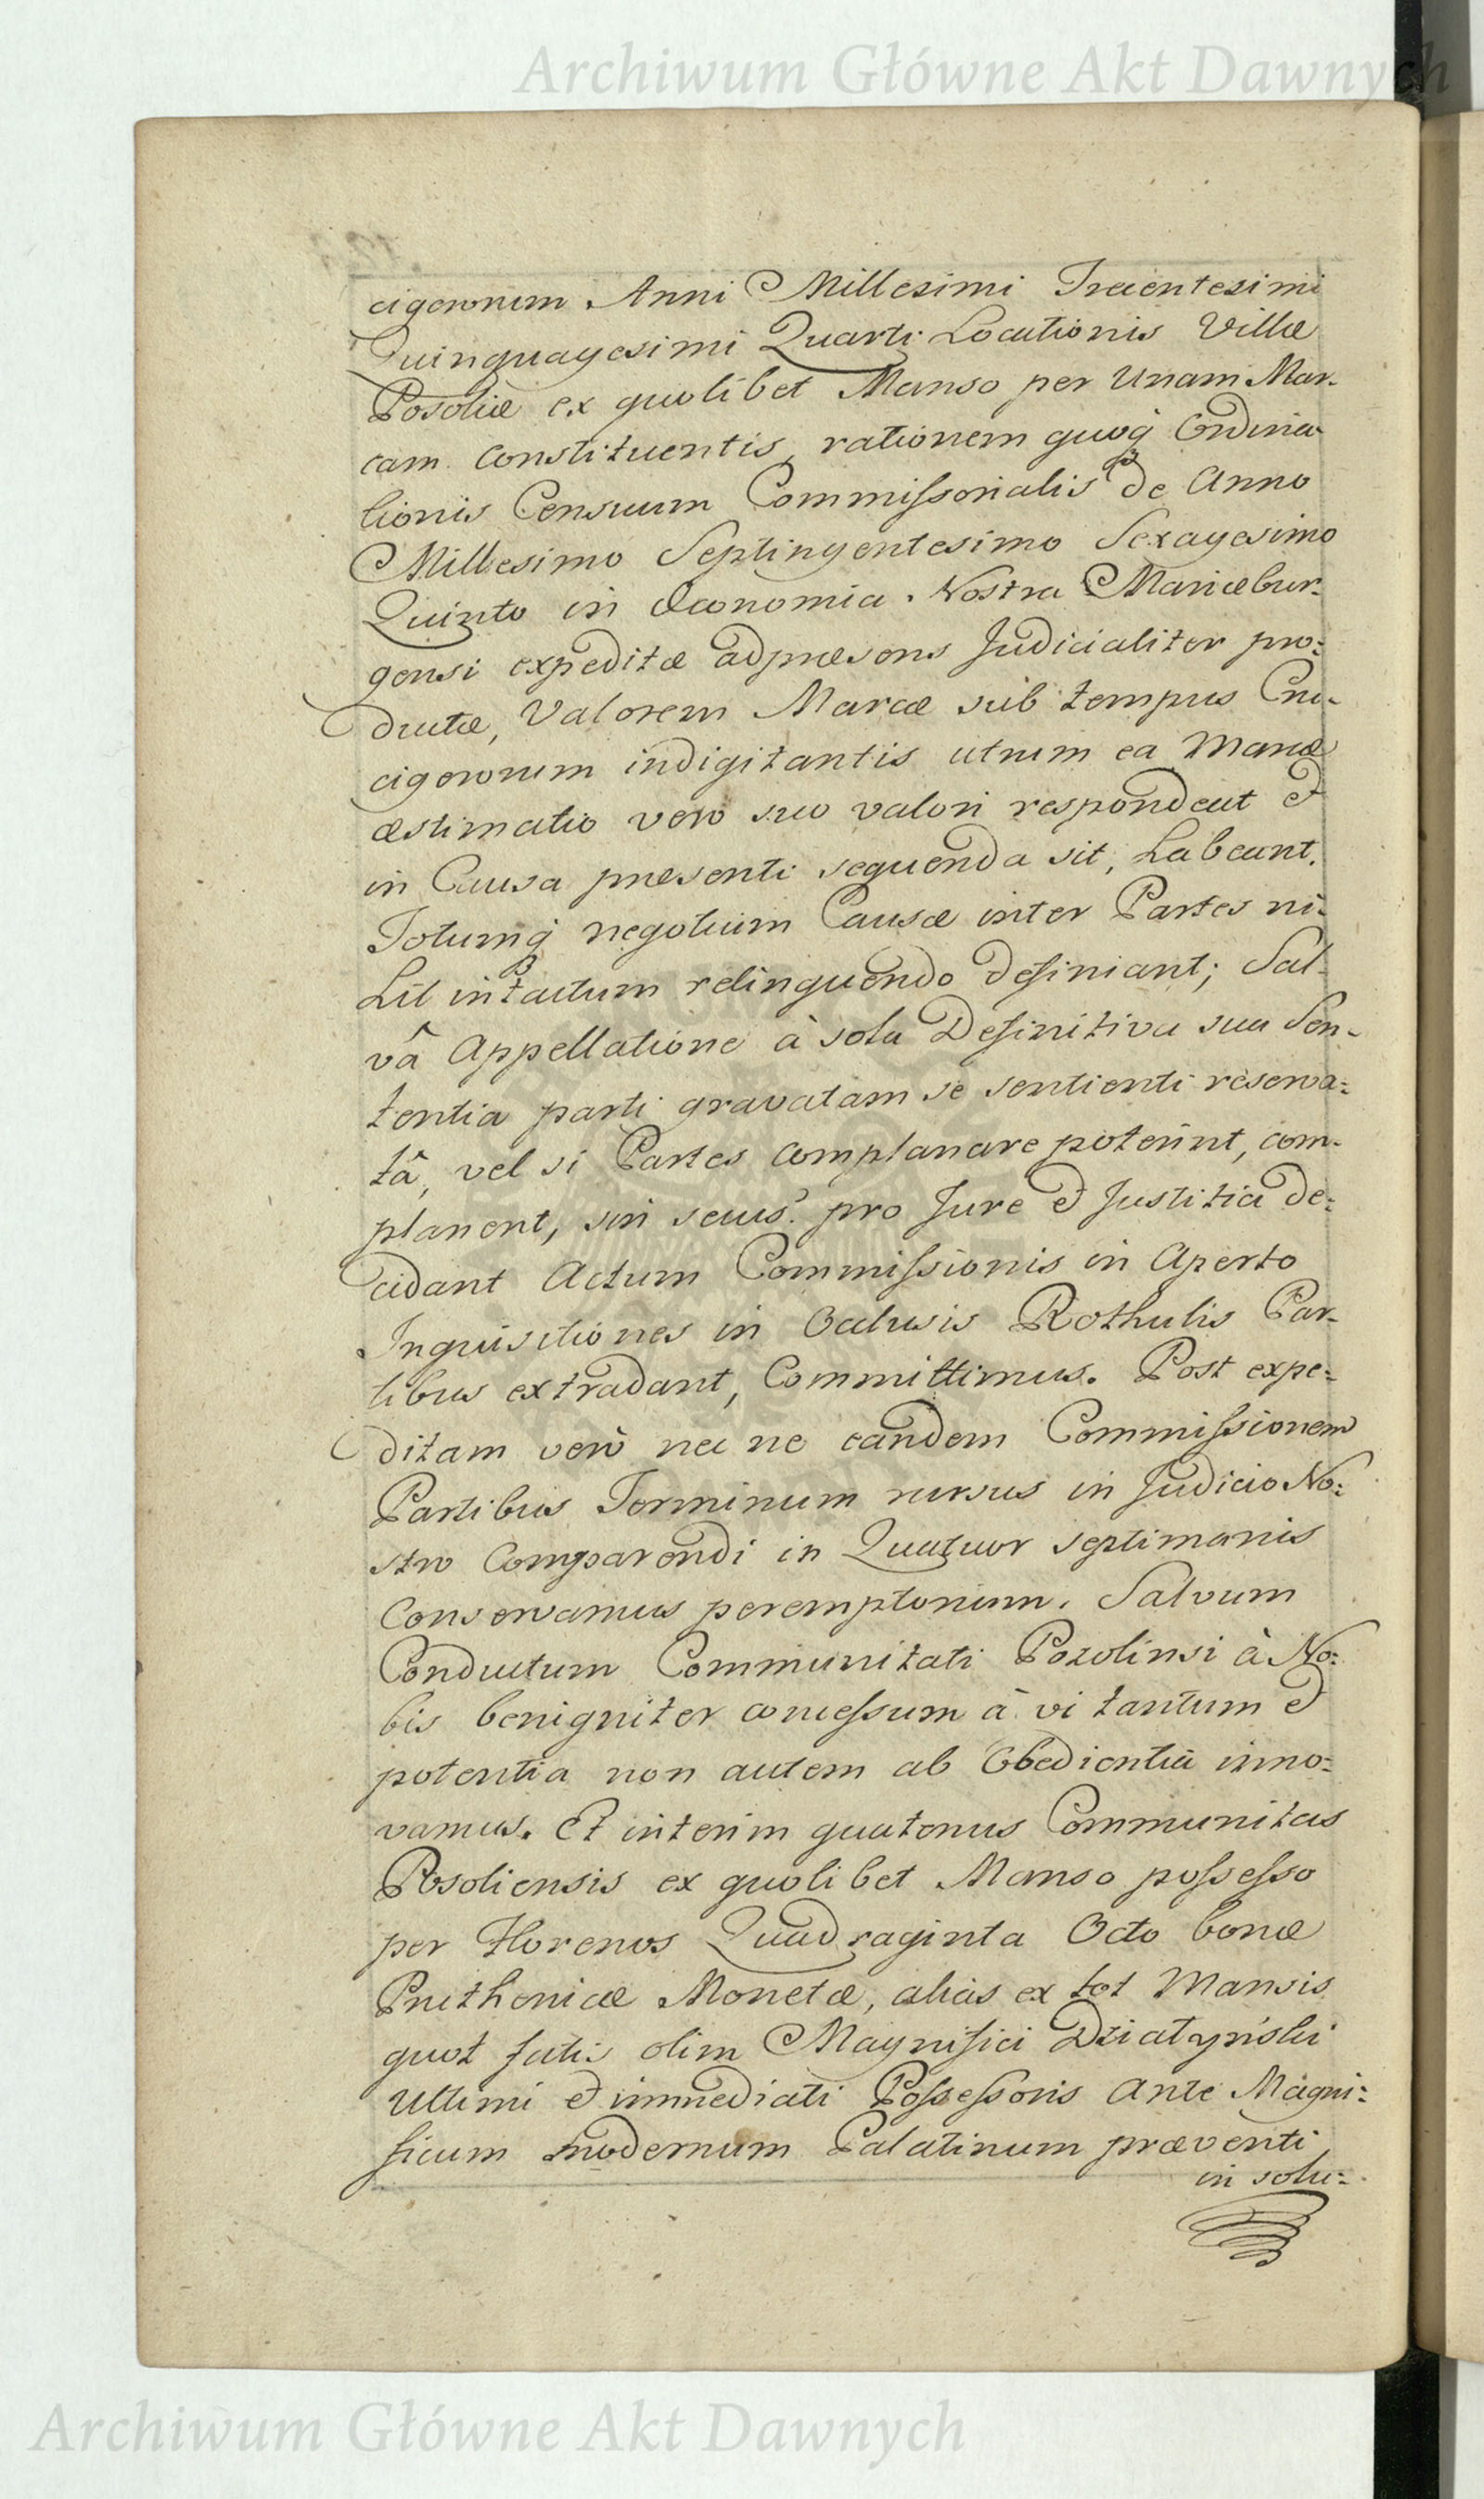 Archiwum Główne Akt Dawnych
cigerorum Anni Millesimi Trecentesimi
Quinquagesimi Quarti Locationis Villæ
Posoliæ ex quolibet Manso per Unam Mar-
cam constituentis, rationem quoq₃ Ordina-
tionis Censuum Commissorialis de Anno
Millesimo Septingentesimo Sexagesimo
Quinto in Œconomia Nostra Mariæbur-
gensi expeditæ ad præsens Judicialiter pro=
ductæ, Valorem Marcæ sub tempus Cru-
cigerorum indigitantis utrum ea Marcæ
æstimatio vero suo valori respondeat et
in Causa præsenti sequenda sit, habeant.
Totumq₃ negotium Causæ inter Partes ni-
hil intactum relinquendo definiant; Sal-
vâ Appellatione à sola Definitiva sua Sen-
tentia parti gravatam se sentienti reserva=
tâ, vel si Partes complanare poterint, com-
planent, sin secus pro Jure et Justitia de=
cidant Actum Commissionis in Aperto
Inquisitiones in Oclusis Rothulis Par-
tibus extradant, Committimus. Post expe=
ditam verò nec ne eandem Commissionem
Partibus Terminum rursus in Judicio No=
stro Comparendi in Quatuor septimanis
Conservamus peremptorium. Salvum
Conductum Communitati Pozolinsi à No=
bis benigniter concessum à vi tantum et
potentia non autem ab Obedientiâ inno=
vamus. Et interim quatenus Communitas
Posoliensis ex quolibet Manso possesso
per Florenos Quadraginta Octo bonæ
Pruthenicæ Monetæ, alias ex tot Mansis
quot fatis olim Magnifici Działyński
Ultimi et immediati Possessoris Ante Magni=
ficum modernum Palatinum præventi
in solu=
Archiwum Główne Akt Dawnych